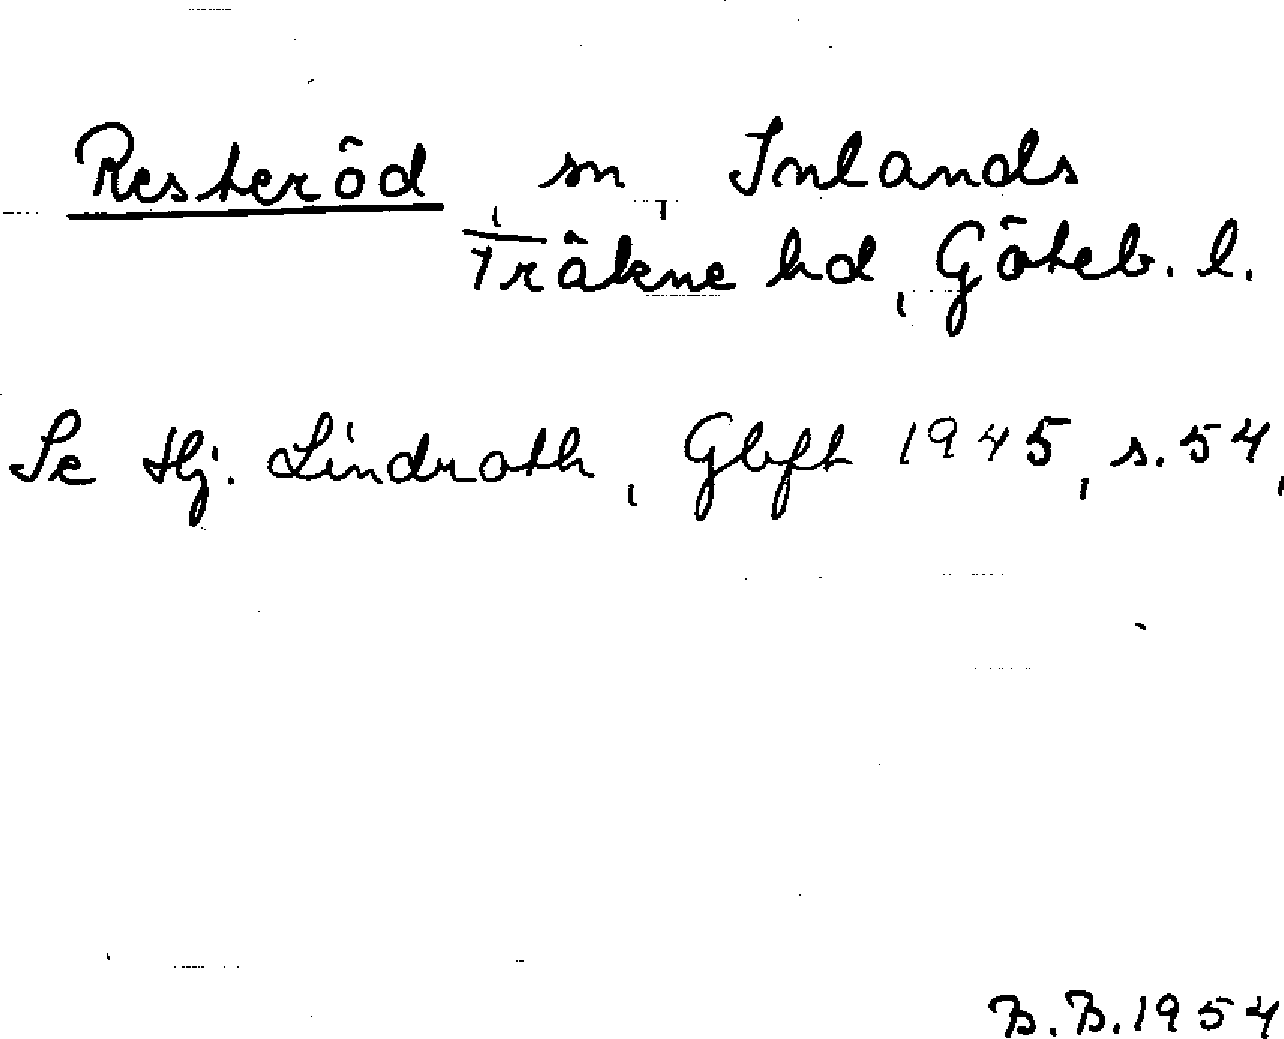 Resteröd, sn, Inlands
Fräkne hd, Göteb. l.
Se Hj. Lindroth, Gbgft 1945, s. 54,
B.B. 1954